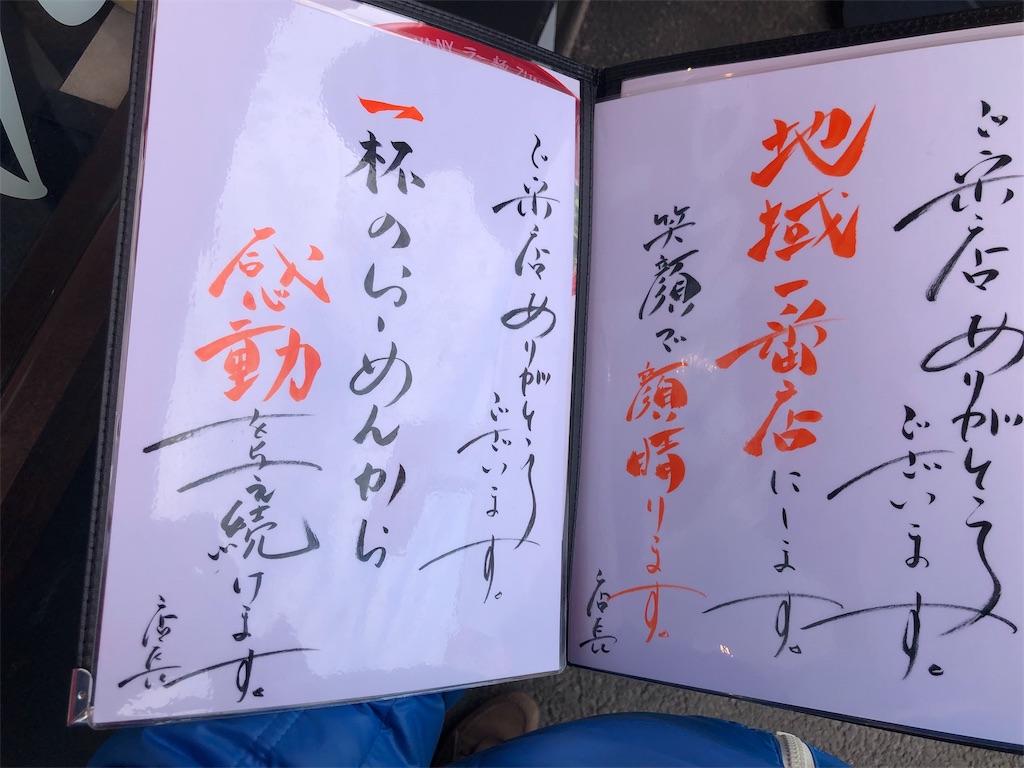 ご来店ありがとう
ございます。
地域一番店にします。
笑顔で顔晴ります。
店長
ご来店ありがとう
ございます。
一杯のらーめんから
感動を与え続けます。
店長